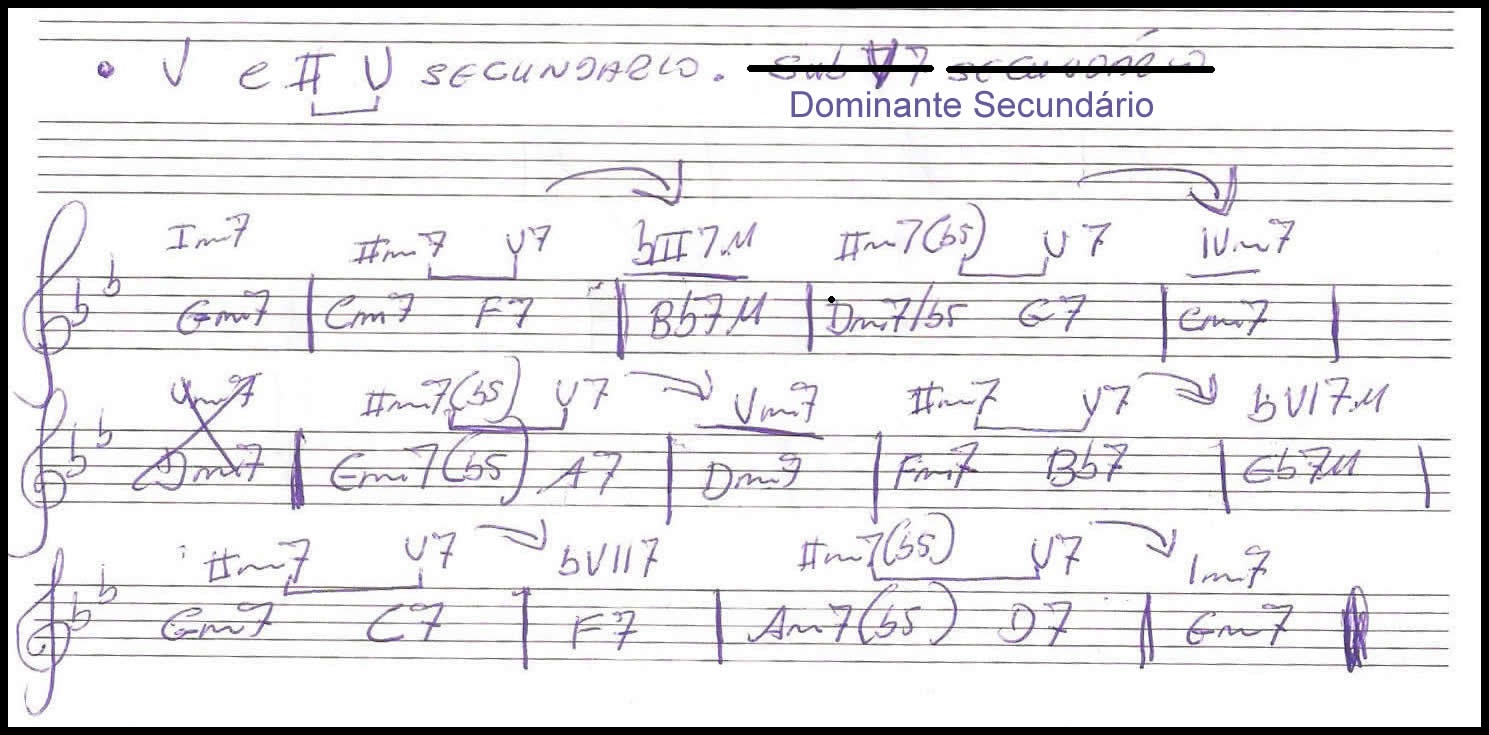 • V e II V SECUNDARIO. Sub V7 SECUNDÁRIO
Dominante Secundário
Im7 IIm7 V7 bIII7M IIm7(b5) V7 IVm7
Gm7 Cm7 F7 Bb7M Dm7/b5 G7 Cm7
Vm7 IIm7(b5) V7 Vm7 IIm7 V7 bVI7M
Dm7 Em7(b5) A7 Dm7 Fm7 Bb7 Eb7M
IIm7 V7 bVII7 IIm7(b5) V7 Im7
Gm7 C7 F7 Am7(b5) D7 Gm7